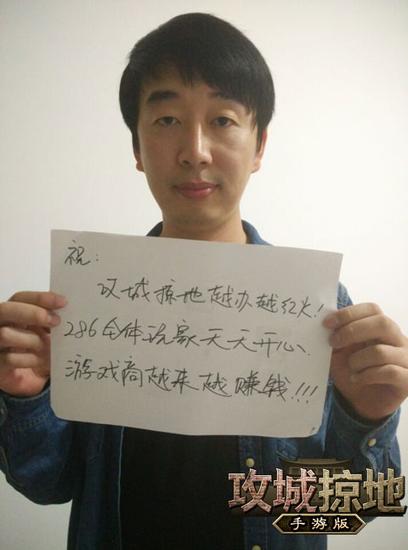 祝:
攻城掠地越办越红火!
286全体玩家天天开心、
游戏商越来越赚钱!!!
攻城掠地
手游版